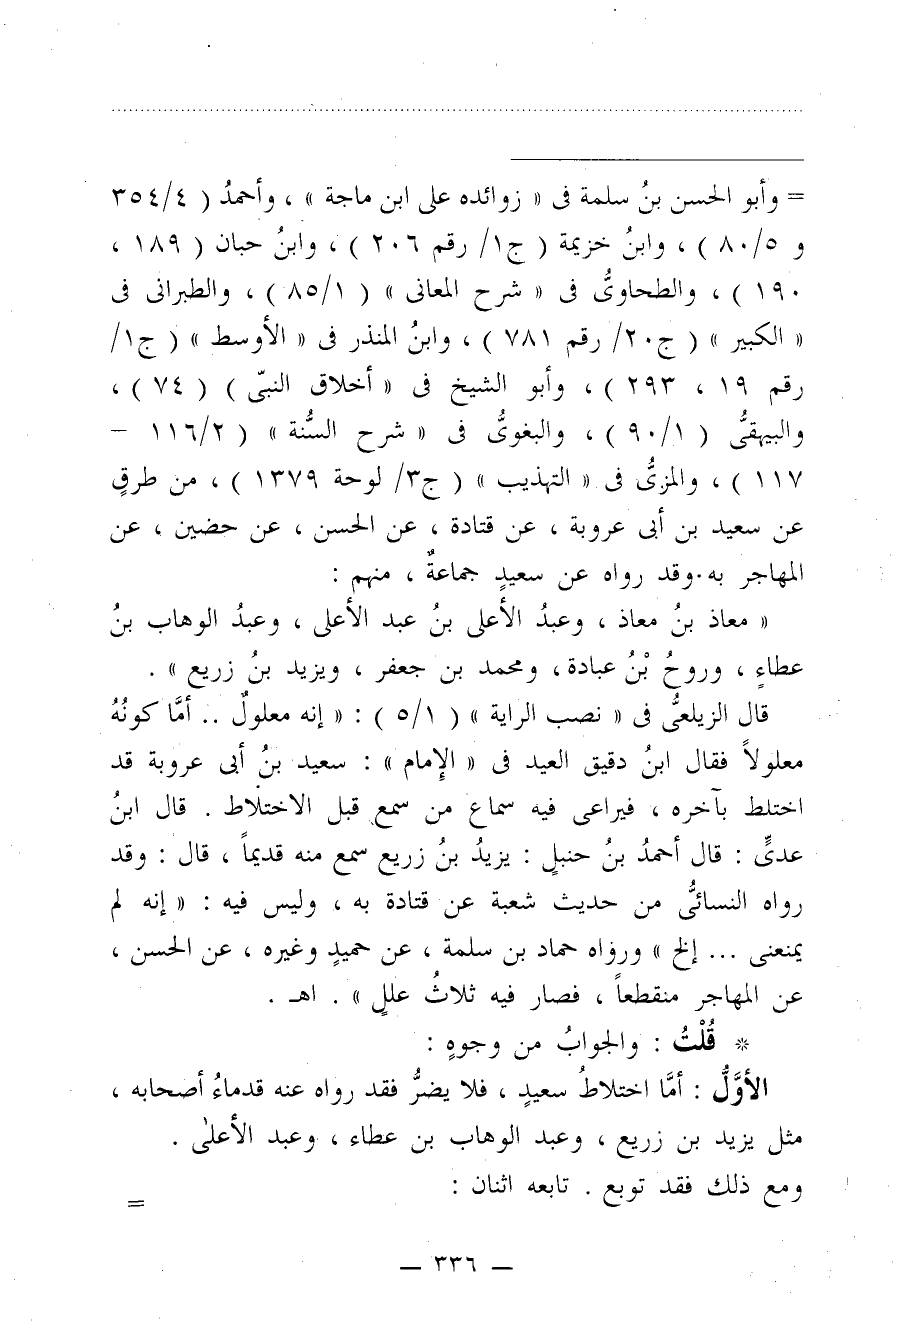 = وأبو الحسن بنُ سلمة فى « زوائده على ابن ماجة » ، وأحمدُ ( ٣٥٤/٤
و ٨٠/٥ ) ، وابنُ خزيمة ( ج١/ رقم ٢٠٦ ) ، وابنُ حبان ( ١٨٩ ،
١٩٠ ) ، والطحاوىُّ فى « شرح المعانى » ( ٨٥/١ ) ، والطبرانى فى
« الكبير » ( ج٢٠/ رقم ٧٨١ ) ، وابنُ المنذر فى « الأوسط » ( ج١/
رقم ١٩ ، ٢٩٣ ) ، وأبو الشيخ فى « أخلاق النبىّ ) ( ٧٤ ) ،
والبيهقىُّ ( ٩٠/١ ) ، والبغوىُّ فى « شرح السُّنة » ( ١١٦/٢ –
١١٧ ) ، والمزىُّ فى « التهذيب » ( ج٣/ لوحة ١٣٧٩ ) ، من طرقٍ
عن سعيد بن أبى عروبة ، عن قتادة ، عن الحسن ، عن حضين ، عن
المهاجر به.وقد رواه عن سعيدٍ جماعةٌ ، منهم :
« معاذ بنُ معاذ ، وعبدُ الأعلى بنُ عبد الأعلى ، وعبدُ الوهاب بنُ
عطاءٍ ، وروحُ بْنُ عبادة ، ومحمد بن جعفر ، ويزيد بنُ زريع » .
قال الزيلعىُّ فى « نصب الراية » ( ٥/١ ) : « إنه معلولٌ .. أمَّا كونُهُ
معلولاً فقال ابنُ دقيق العيد فى « الإمام » : سعيد بنُ أبى عروبة قد
اختلط بآخره ، فيراعى فيه سماع من سمع قبل الاختلاط . قال ابنُ
عدىٍّ : قال أحمدُ بنُ حنبلٍ : يزيدُ بنُ زريع سمع منه قديماً ، قال : وقد
رواه النسائىُّ من حديث شعبة عن قتادة به ، وليس فيه : « إنه لم
يمنعنى ... إلخ » ورواه حماد بن سلمة ، عن حميدٍ وغيره ، عن الحسن ،
عن المهاجر منقطعاً ، فصار فيه ثلاثُ عللٍ » . اهـ .
* قُلْتُ : والجوابُ من وجوهٍ :
الأوَّلُ : أمَّا اختلاطُ سعيدٍ ، فلا يضرُّ فقد رواه عنه قدماءُ أصحابه ،
مثل يزيد بن زريع ، وعبد الوهاب بن عطاء ، وعبد الأعلىٰ .
ومع ذلك فقد توبع . تابعه اثنان :
=
— ٣٣٦ —